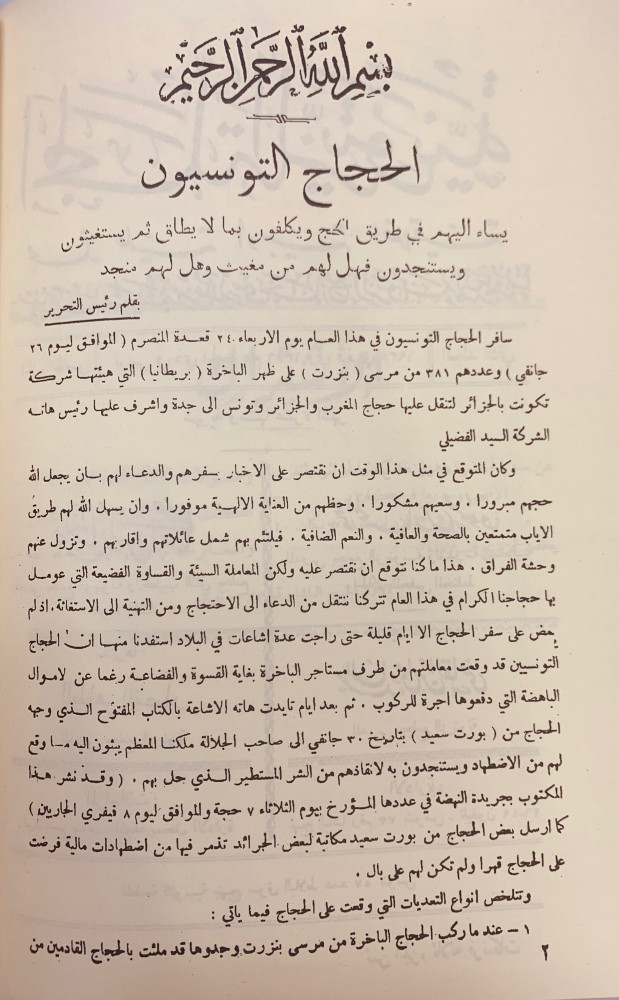 بسم الله الرحمن الرحيم
الحجاج التونسيون
يساء اليهم في طريق الحج ويكلفون بما لا يطاق ثم يستغيثون
ويستنجدون فهل لهم من مغيث وهل لهم منجد
بقلم رئيس التحرير
سافر الحجاج التونسيون في هذا العام يوم الاربعاء ٢٤ قعدة المنصرم ( الموافق ليوم ٢٦
جانفي ) وعددهم ٣٨١ من مرسى ( بنزرت ) على ظهر الباخرة ( بريطانيا ) التي هيئتها شركة
تكونت بالجزائر لتنقل عليها حجاج المغرب والجزائر وتونس الى جدة واشرف عليها رئيس هاته
الشركة السيد الفضيلي
وكان المتوقع في مثل هذا الوقت ان نقتصر على الاخبار بسفرهم والدعاء لهم بان يجعل الله
حجهم مبرورا . وسعيهم مشكورا . وحظهم من العناية الالهية موفورا . وان يسهل الله لهم طريق
الاياب متمتعين بالصحة والعافية . والنعم الضافية . فيلتئم بهم شمل عائلاتهم واقاربهم . وتزول عنهم
وحشة الفراق . هذا ما كنا نتوقع ان نقتصر عليه ولكن المعاملة السيئة والقساوة الفضيعة التي عومل
بها حجاجنا الكرام في هذا العام تتركنا ننتقل من الدعاء الى الاحتجاج ومن التهنية الى الاستغاثة . اذ لم
يمض على سفر الحجاج الا ايام قليلة حتى راجت عدة اشاعات في البلاد استفدنا منها ان الحجاج
التونسيين قد وقعت معاملتهم من طرف مستاجر الباخرة بغاية القسوة والفضاعة رغما عن لاموال
الباهضة التي دفعوها اجرة للركوب . ثم بعد ايام تايدت هاته الاشاعة بالكتاب المفتوح الذي وجهه
الحجاج من ( بورت سعيد ) بتاريخ ٣٠ جانفي الى صاحب الجلالة ملكنا المعظم يبثون اليه ما وقع
لهم من الاضطهاد ويستنجدون به لانقاذهم من الشر المستطير الذي حل بهم . ( وقد نشر هذا
المكتوب بجريدة النهضة في عددها المؤرخ بيوم الثلاثاء ٧ حجة والموافق ليوم ٨ فيفري الجاريين )
كما ارسل بعض الحجاج من بورت سعيد مكاتبة لبعض الجرائد تذمر فيها من اضطهادات مالية فرضت
على الحجاج قهرا ولم تكن لهم على بال .
وتتلخص انواع التعديات التي وقعت على الحجاج فيما ياتي :
١ – عند ما ركب الحجاج الباخرة من مرسى بنزرت وجدوها قد ملئت بالحجاج القادمين من
٢